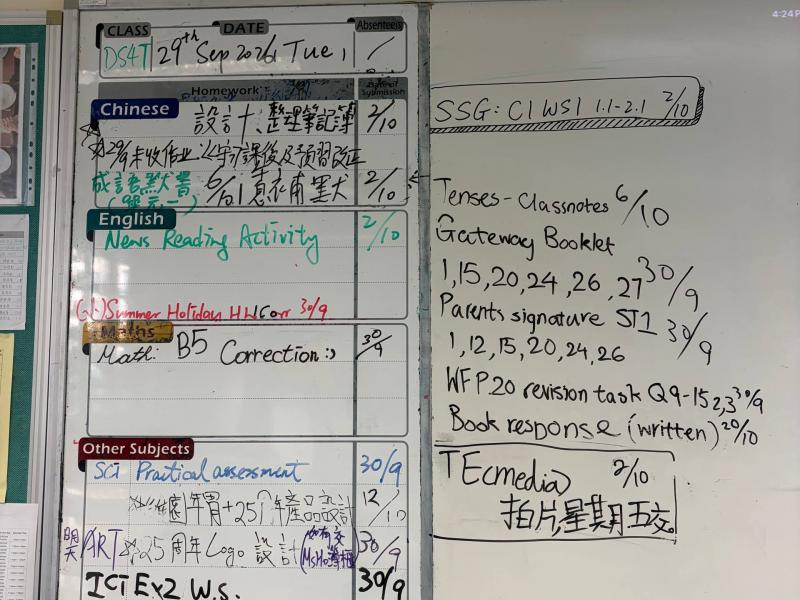 4:24 P
CLASS DATE Absentees
DS4T 29th Sep 2026, Tue, /
Homework Date of Submission
Chinese
設計、整理筆記簿 2/10
29/9 未收作業
課後及預習改正
成語默書 6/10 2/10
(單元一)
English
News Reading Activity 2/10
Summer Holiday HW Corr 30/9
Maths
Math: B5 Correction:) 30/9
Other Subjects
SCI Practical assessment 30/9
園年冑+25个年產品設計 12/10
明天 ART 25周年Logo設計 30/9
ICT Ex2 W.S. 30/9
SSG: C1 WS1 1.1-2.1 2/10
Tenses-Classnotes 6/10
Gateway Booklet
1,15,20,24,26,27 30/9
Parents signature ST1 30/9
1,12,15,20,24,26
WFP.20 revision task Q9-15 2,3 30/9
Book response (written) 20/10
TE(media) 2/10
拍片,星期五交。